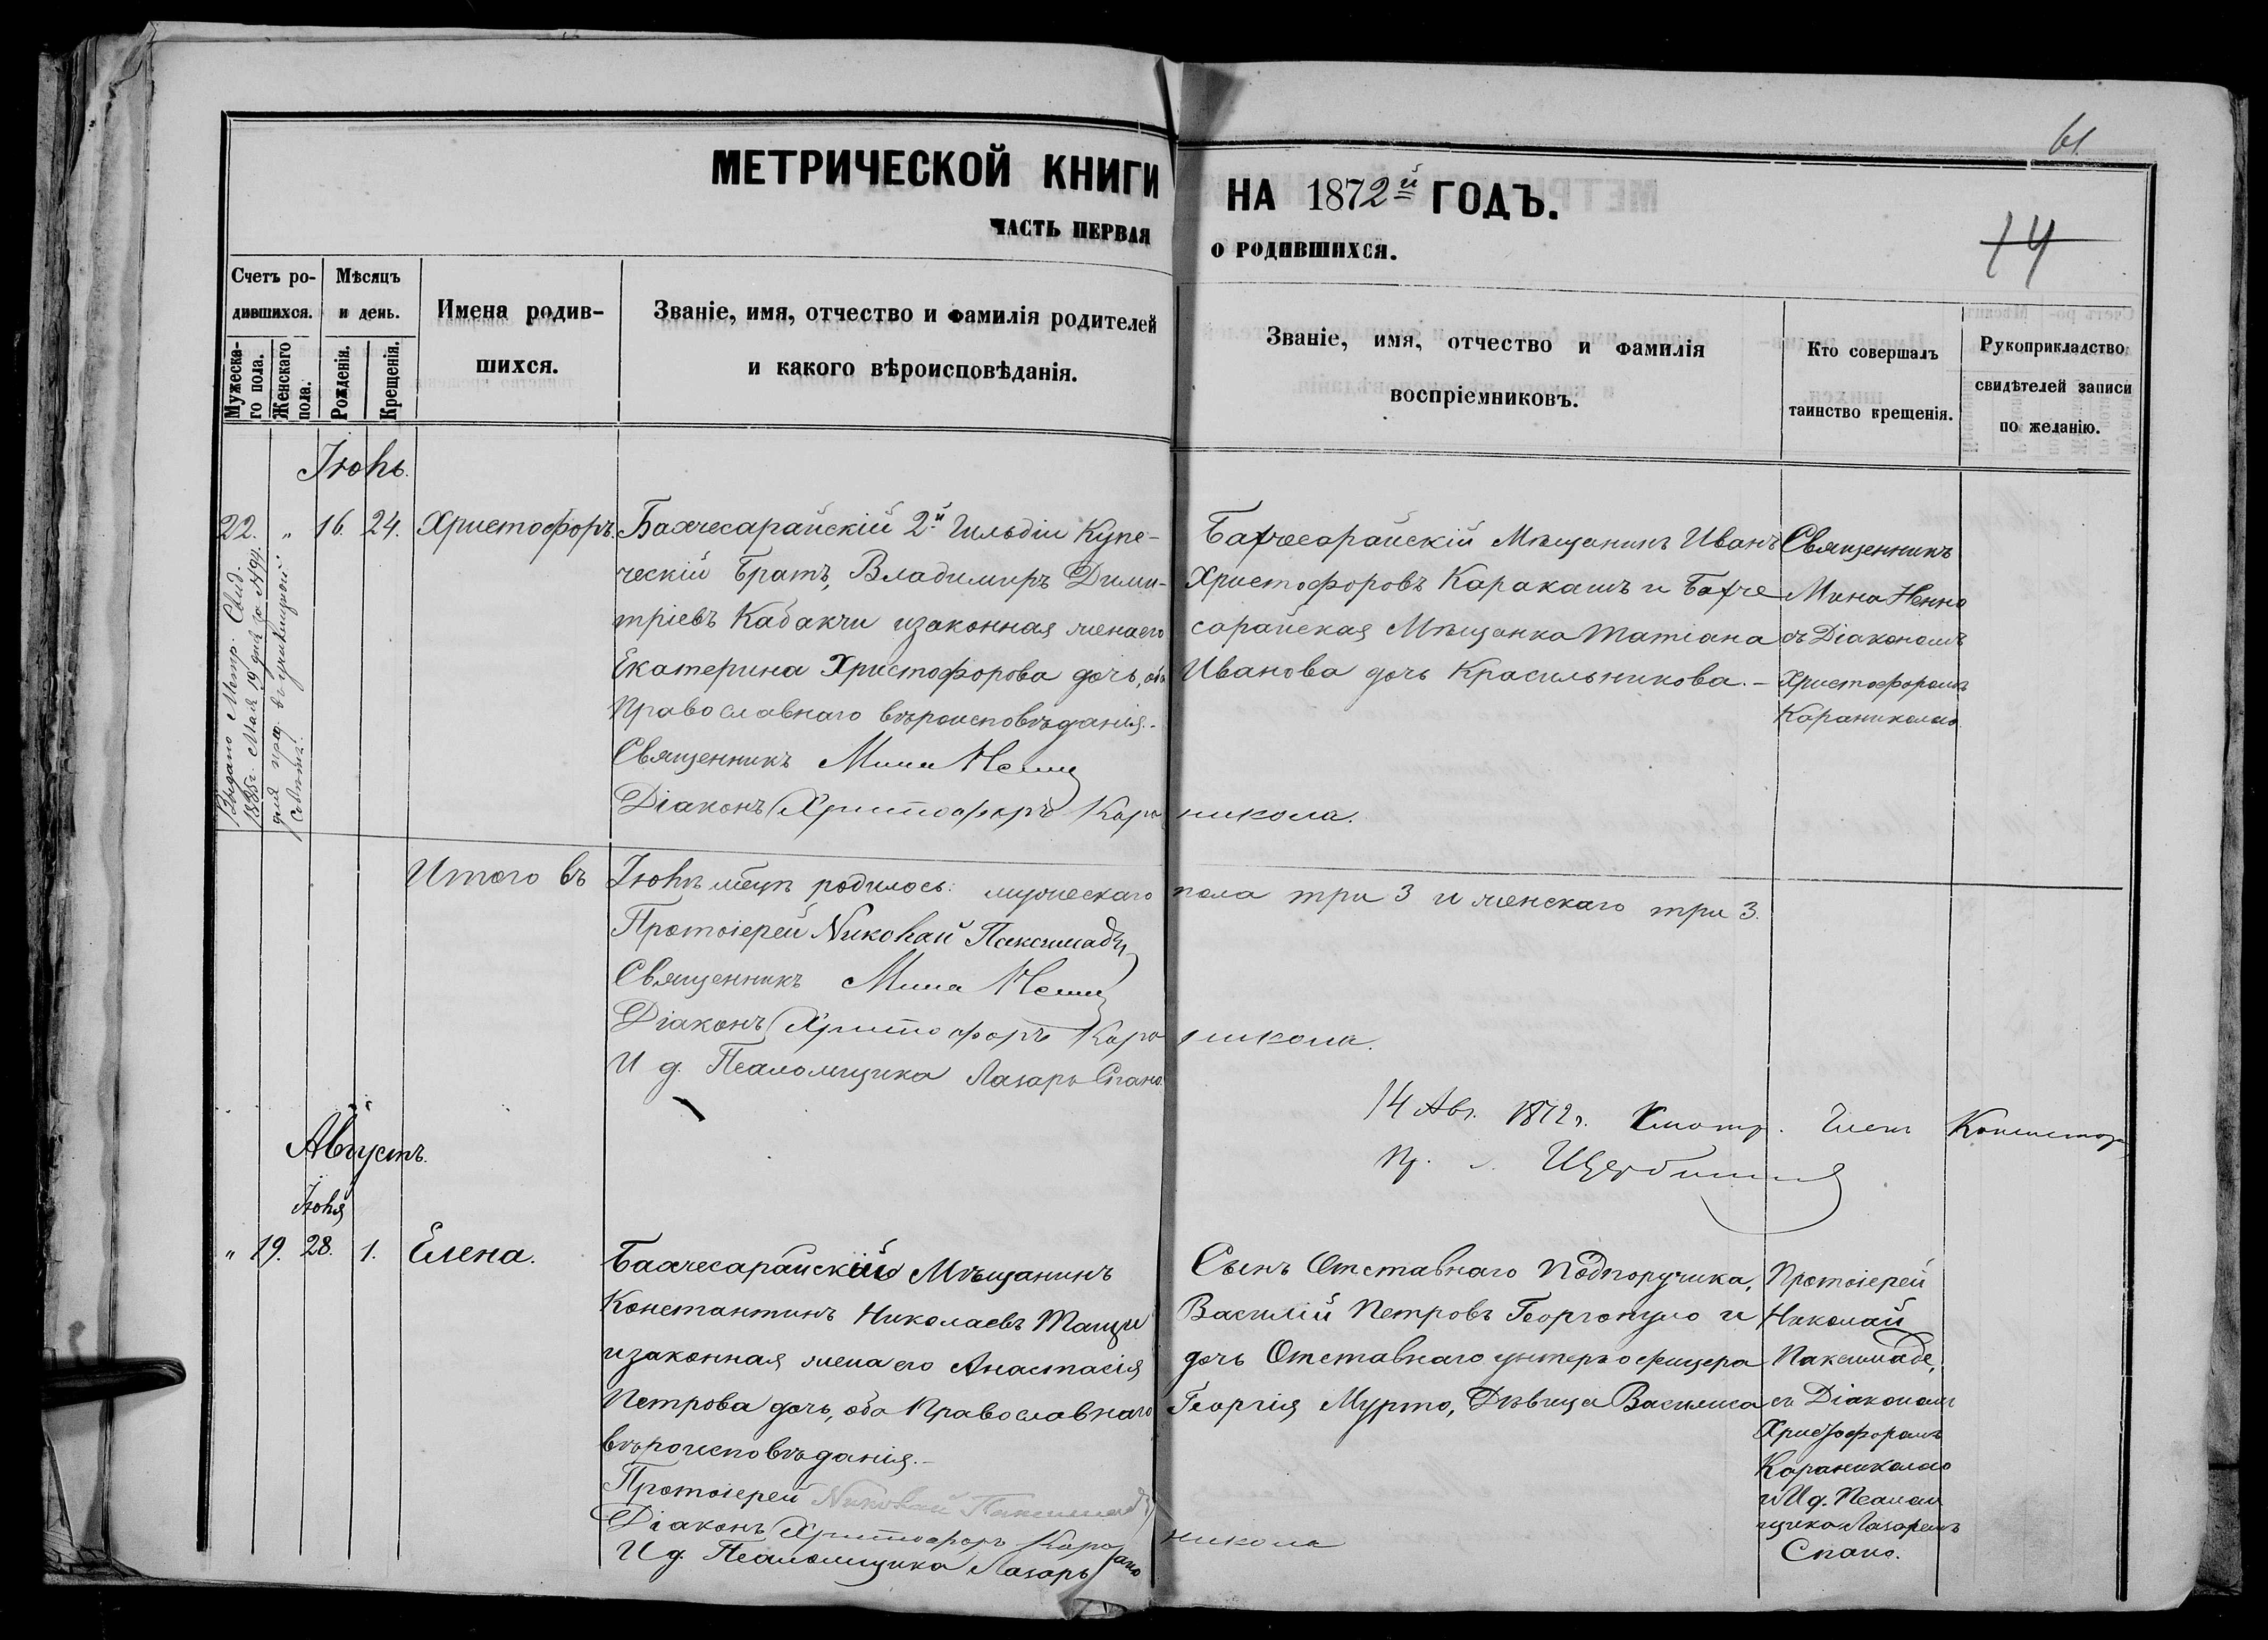 61.
МЕТРИЧЕСКОЙ КНИГИ НА 1872й ГОДЪ.
14
ЧАСТЬ ПЕРВАЯ О РОДИВШИХСЯ.
Счетъ ро-
дившихся.
Мужеска-
го пола.
Женскаго
пола.
Мѣсяцъ
и день.
Рожденія.
Крещенія.
Имена родив-
шихся.
Званіе, имя, отчество и фамилія родителей
и какого вѣроисповѣданія.
Званіе, имя, отчество и фамилія
воспріемниковъ.
Кто совершалъ
таинство крещенія.
Рукоприкладство
свидѣтелей записи
по желанію.
Іюнь.
22. " 16. 24. Христофоръ.
Бахчесарайскій 2й Гильдіи Купе-
ческій Братъ, Владимиръ Дими-
тріевъ Кабакчи и законная жена его
Екатерина Христофорова дочь, оба
Православнаго вѣроисповѣданія.-
Священникъ Мина Ненно
Діаконъ Христофоръ Караникола.
Бахчесарайскій Мѣщанинъ Иванъ
Христофоровъ Каракашъ и Бахче
сарайская Мѣщанка Татіана
Иванова дочь Красильникова.-
Священникъ
Мина Ненно
съ Діакономъ
Христофоромъ
Караниколою.
Выдано Метр. Свид.
1885г. Мая 19 дня за №94.
для пред. въ
Итого въ Іюнѣ мѣцѣ родилось: мужескаго пола три 3 и женскаго три 3.
Протоіерей Николай Паксимадъ
Священникъ Мина Ненно
Діаконъ Христофоръ Караникола.
И д. Псаломщика Лазарь Спано.
14 Авг. 1872г. Смотр. Членъ Консистор
Пр. Щербина
Августъ.
Іюня
" 19. 28. 1. Елена.
Бахчесарайскій Мѣщанинъ
Константинъ Николаевъ Танци
и законная жена его Анастасія
Петрова дочь, оба Православнаго
вѣроисповѣданія.-
Протоіерей Николай Паксимадъ
Діаконъ Христофоръ Караникола
И д. Псаломщика Лазарь Спано
Сынъ Отставнаго Подпоручика,
Василій Петровъ Георгопуло и
дочь Отставнаго унтеръ офицера
Георгія Мурто, Дѣвица Василиса
Протоіерей
Николай
Паксимаде,
съ Діакономъ
Христофоромъ
Караниколою
и И д. Псалом
щика Лазаремъ
Спано.